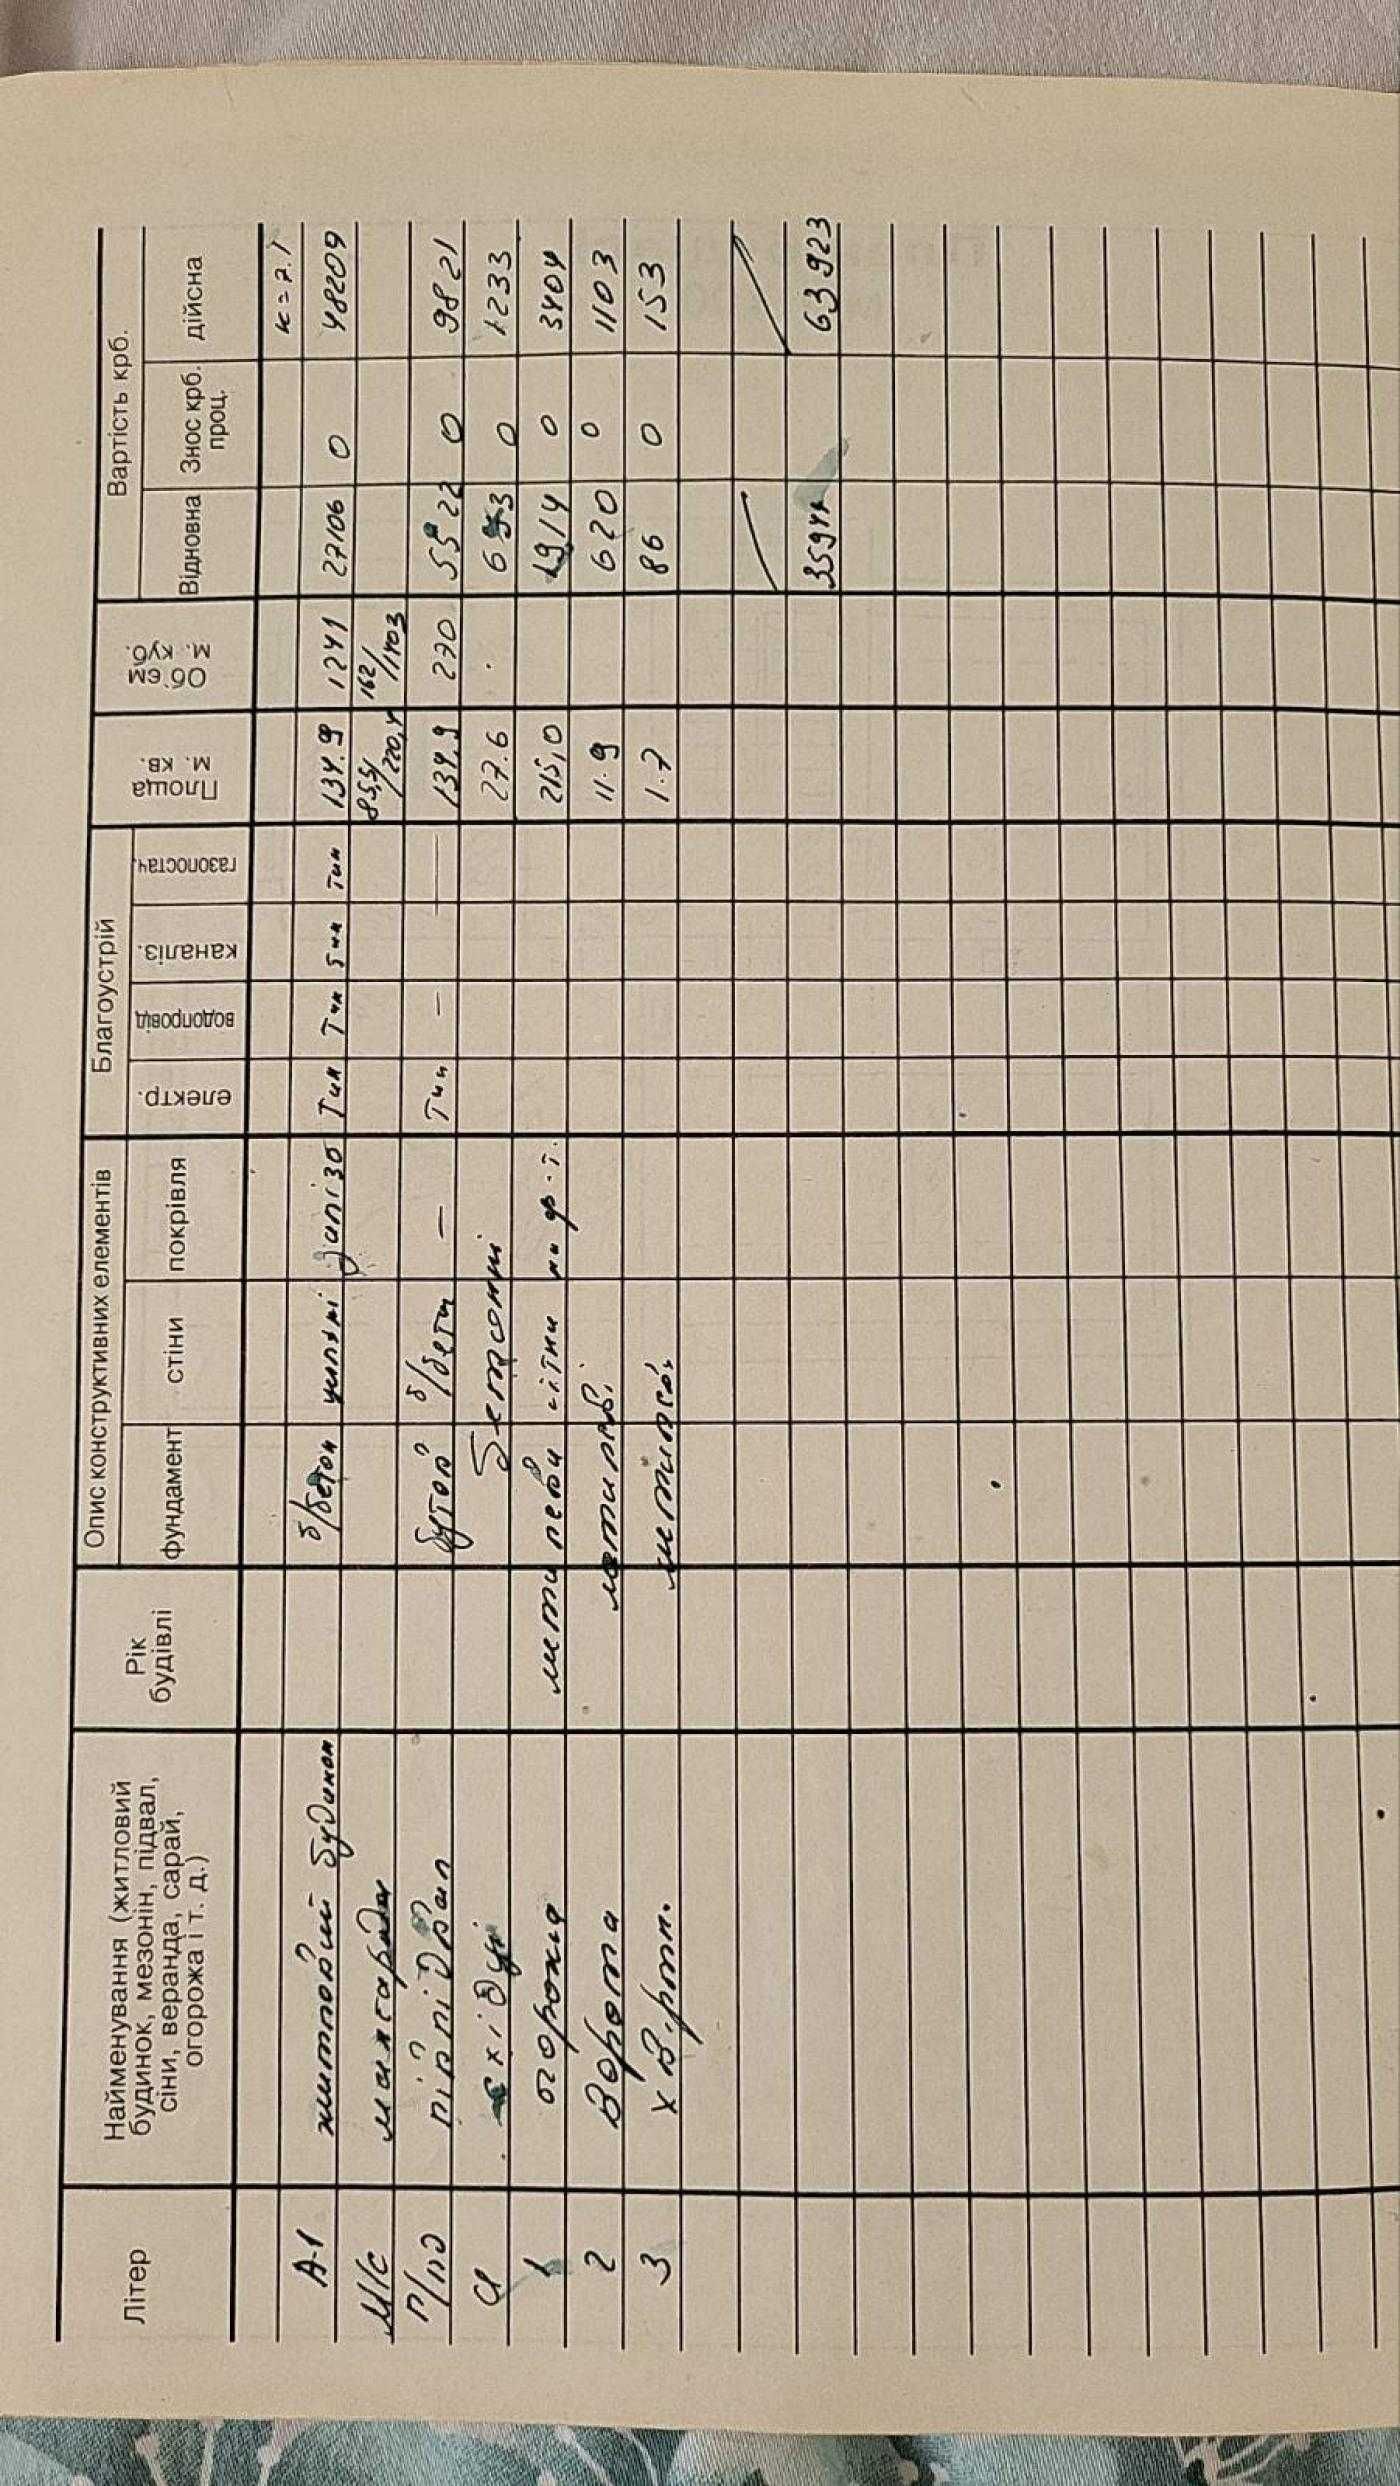 Літер
Найменування (житловий
будинок, мезонін, підвал,
сіни, веранда, сарай,
огорожа і т. д.)
Рік
будівлі
Опис конструктивних елементів
фундамент
стіни
покрівля
Благоустрій
електр.
водопровід
каналіз.
газопостач.
Площа
м. кв.
Об'єм
м. куб.
Вартість крб.
Відновна
Знос крб.
проц.
дійсна
А-1 житловий будинок б/бетон залізо 134.9 1241 27106 0 48209
М/с мансарда 85,5/220,4 162/1403
П/пд півпідвал бутов б/бетн — Тип — — 134,9 270 5522 0 9821
сходи бетонні 27.6 0 1233
1 огорожа 215,0 1914 0 3404
2 Ворота 11.9 620 0 1103
3 1.7 86 0 153
63923